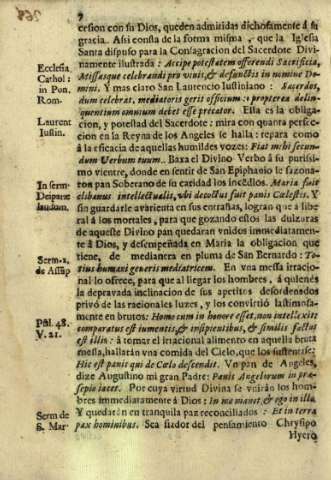 7
cession con su Dios, queden admitidas dichosamente á su
gracia. Assi consta de la forma misma, que la Iglesia
Santa dispuso para la Consagracion del Sacerdote Divi-
namente ilustrada: Accipe potestatem offerendi Sacrificia,
Missasque celebrandi pro vivis, & defunctis in nomine Do-
mini. Y mas claro San Laurencio Iustiniano: Sacerdos,
dum celebrat, mediatoris gerit officium: propterea delin-
quentium omnium debet esse precator. Ella es la obliga-
cion, y potestad del Sacerdote: mira con quanta perfec-
cion en la Reyna de los Angeles se halla: repara como
á la eficacia de aquellas humildes vozes: Fiat mihi secun-
dum Verbum tuum. Baxa el Divino Verbo á su purisi-
mo vientre, donde en sentir de San Epiphanio le sazona-
ton pan Soberano de su caridad los incendios. Maria fuit
clibanus intellectualis, ubi decoctus fuit panis Cælestis. Y
sin guardarle avarienta en sus entrañas, logran que a libe-
ral á los mortales, para que gozando estos las dulzuras
de aqueste Divino pan quedaran vnidos inmediatamen-
te á Dios, y desempeñada en Maria la obligacion que
tiene, de medianera en pluma de San Bernardo: To-
tius humani generis mediatricem. En vna messa irracio-
nal lo ofrece, para que al llegar los hombres, á quienes
la depravada inclinacion de sus apetitos desordenados
privó de las racionales luzes, y los convirtió lastimosa-
mente en brutos: Homo cum in honore esset, non intellexit:
comparatus est iumentis, & insipientibus, & similis factus
est illis: á tomar el irracional alimento en aquella bruta
mesa, hallarán vna comida del Cielo, que los sustente:
Hic est panis qui de Cœlo descendit. Vn pan de Angeles,
dize Augustino mi gran Padre: Panis Angelorum in præ-
sepio iacet. Por cuya virtud Divina se vnirán los hom-
bres immediatamente á Dios: In me manet, & ego in illo.
Y quedarán en tranquila paz reconciliados: Et in terra
pax hominibus. Sea fiador del pensamiento Chrysipo
Hyero
Ecclesia
Cathol:
in Pon.
Rom.
Laurent
Iustin.
In serm-
Deiparæ
laudum.
Serm. 2.
de Assup
Psal. 48.
V. 21.
Serm de
S. Mar-